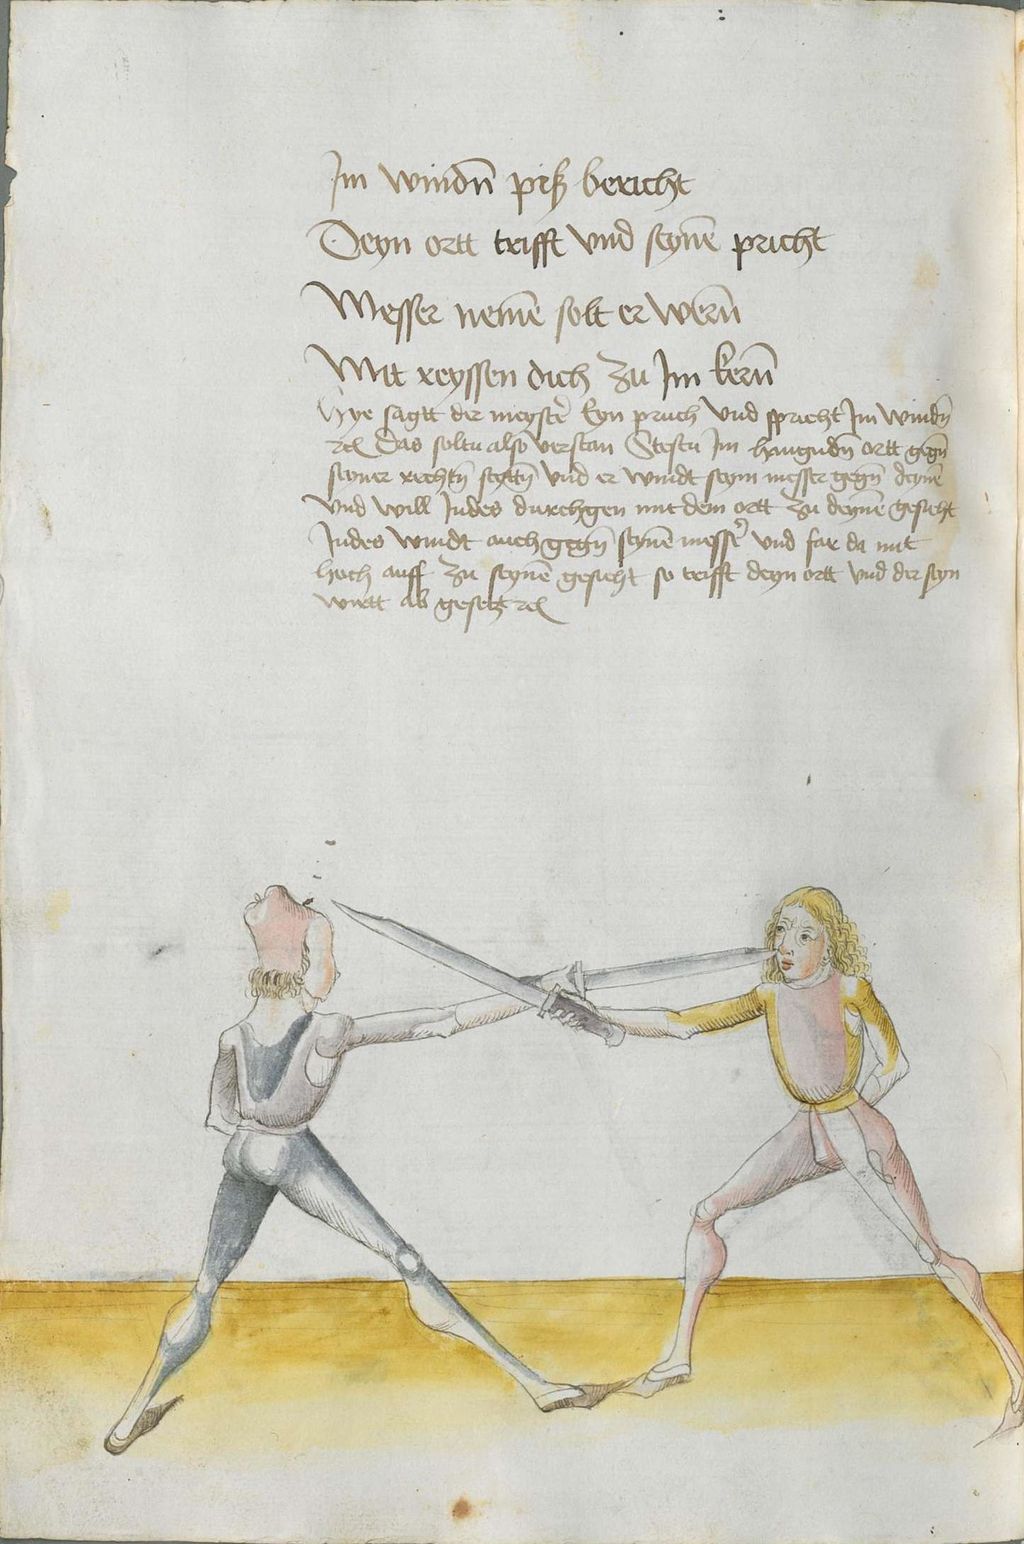 Im windn̄ piß bericht
Deyn ortt trifft vnd seynē pricht
Messer nemē solt er wern̄
Mit reyssen dich zu Im kern̄
Hye sagtt der meyster Eyn pruch vnd spricht Im windn̄
rc̃ Das soltu also verstan Stestu Im hangndn̄ ortt gegn̄
seyner rechtn̄ seyttn̄ vnd er windt seyn messer gegn̄ deynē
vnd will Indes durchgen mit dem ortt zu deynē gesicht
Indes windt auch gegn̄ seynē messer vnd far da mit
hoch auff zu seynē gesicht so trifft deyn ortt vnd der seyn
wirtt ab gesetz rc̃